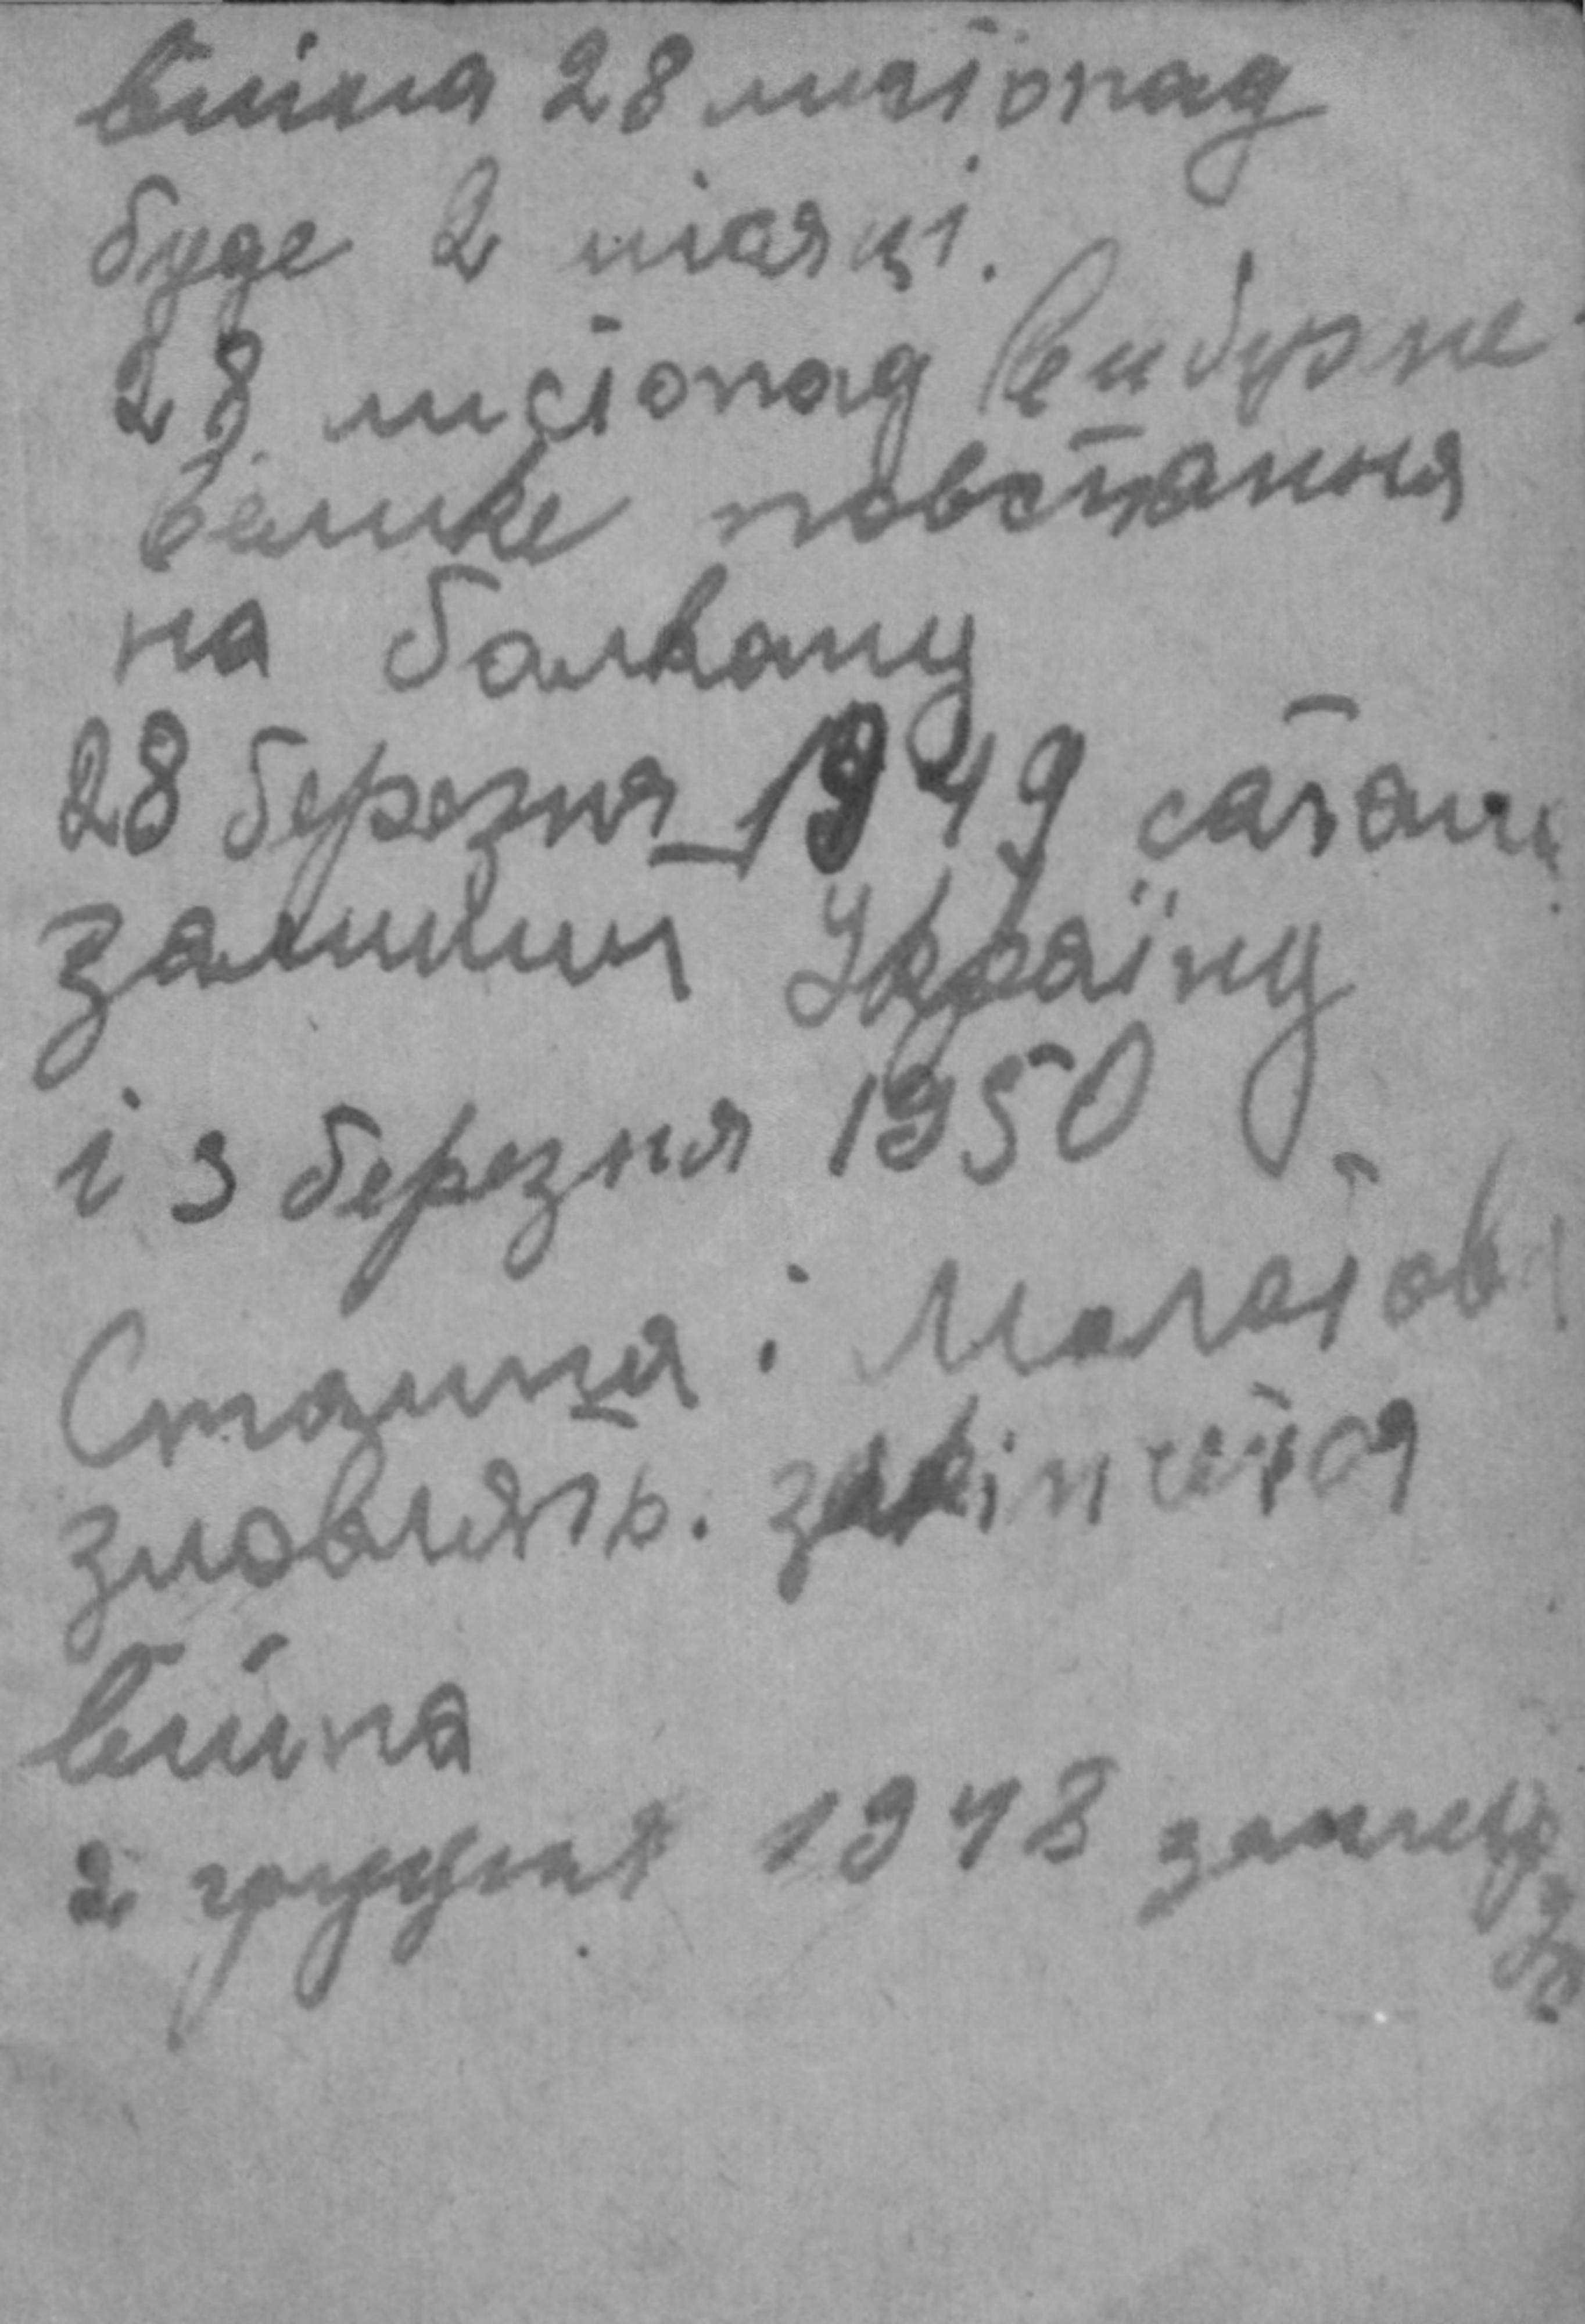 війна 28 листопад
буде 2 місяці.
28 листопад вибухне
велике повстання
на балкану
28 березня 1949 сатана
залишит Україну
і 3 березня 1950
Сталіня і Молотова
зловлять. закінчится
війна
2 грудня 1948 замерзн